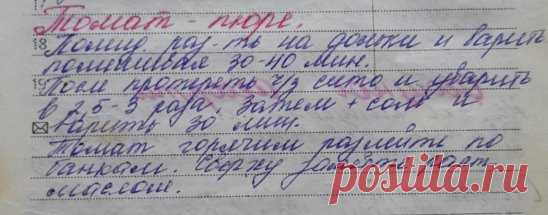 Томат-пюре.
18 Помид. раз-ть на дольки и варить
помешивая 30-40 мин.
19 Посл протереть ч/з сито и уварить
в 2,5-3 раза, затем + соль и
варить 30 мин.
Томат горячим разлить по
банкам. Сверху залить раст.
маслом.
postila.ru